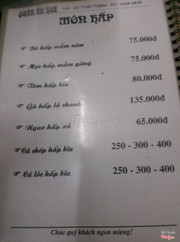 MÓN HẤP
Bò hấp mắm nêm 75.000đ
Mực hấp mắm gừng 75.000đ
Tôm hấp bia 80.000đ
Gà hấp lá chanh 135.000đ
Ngao hấp xả 65.000đ
Cá chép hấp bia 250 - 300 - 400
Cá lóc hấp bia 250 - 300 - 400
Chúc quý khách ngon miệng!